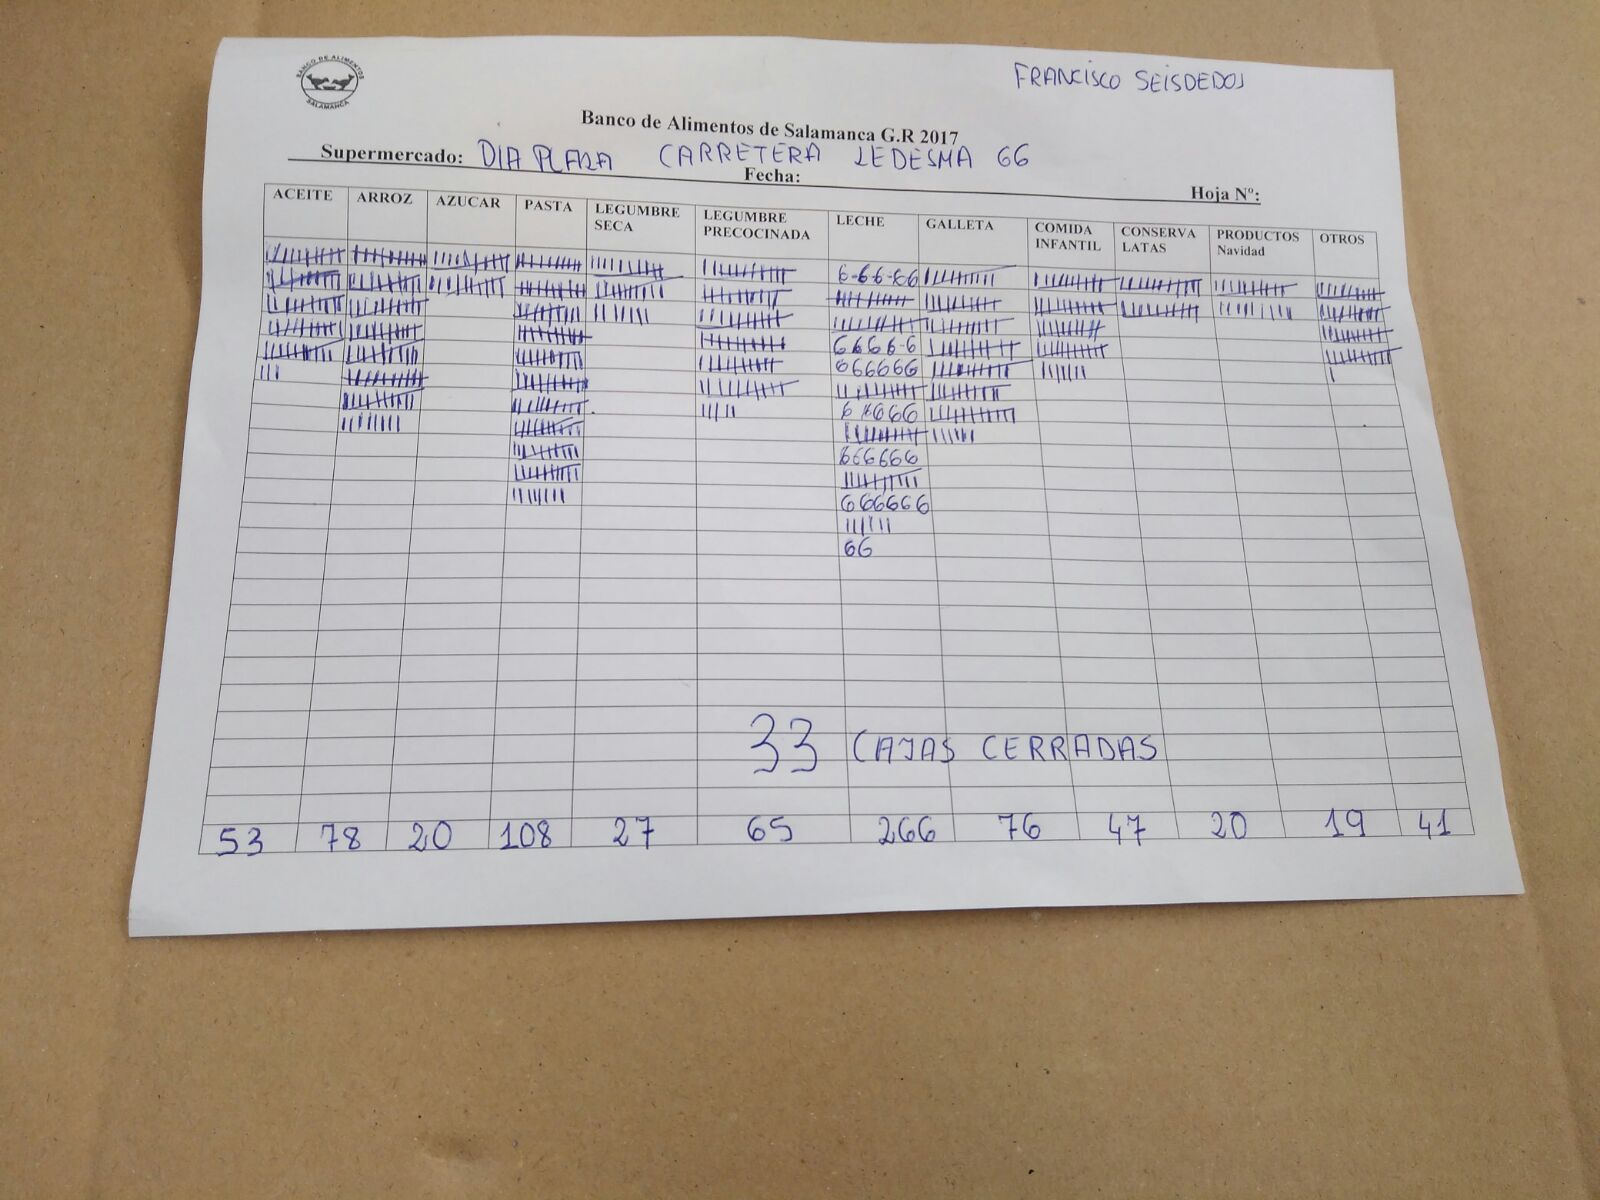 BANCO DE ALIMENTOS
SALAMANCA
FRANCISCO SEISDEDOS
Banco de Alimentos de Salamanca G.R 2017
Supermercado: DIA PLAZA CARRETERA LEDESMA 66
Fecha:
Hoja Nº:
ACEITE ARROZ AZUCAR PASTA LEGUMBRE SECA LEGUMBRE PRECOCINADA LECHE GALLETA COMIDA INFANTIL CONSERVA LATAS PRODUCTOS Navidad OTROS
6-6-6-6-6
6 6 6 6-6
666666
666666
666666
66
33 CAJAS CERRADAS
53 78 20 108 27 65 266 76 47 20 19 41